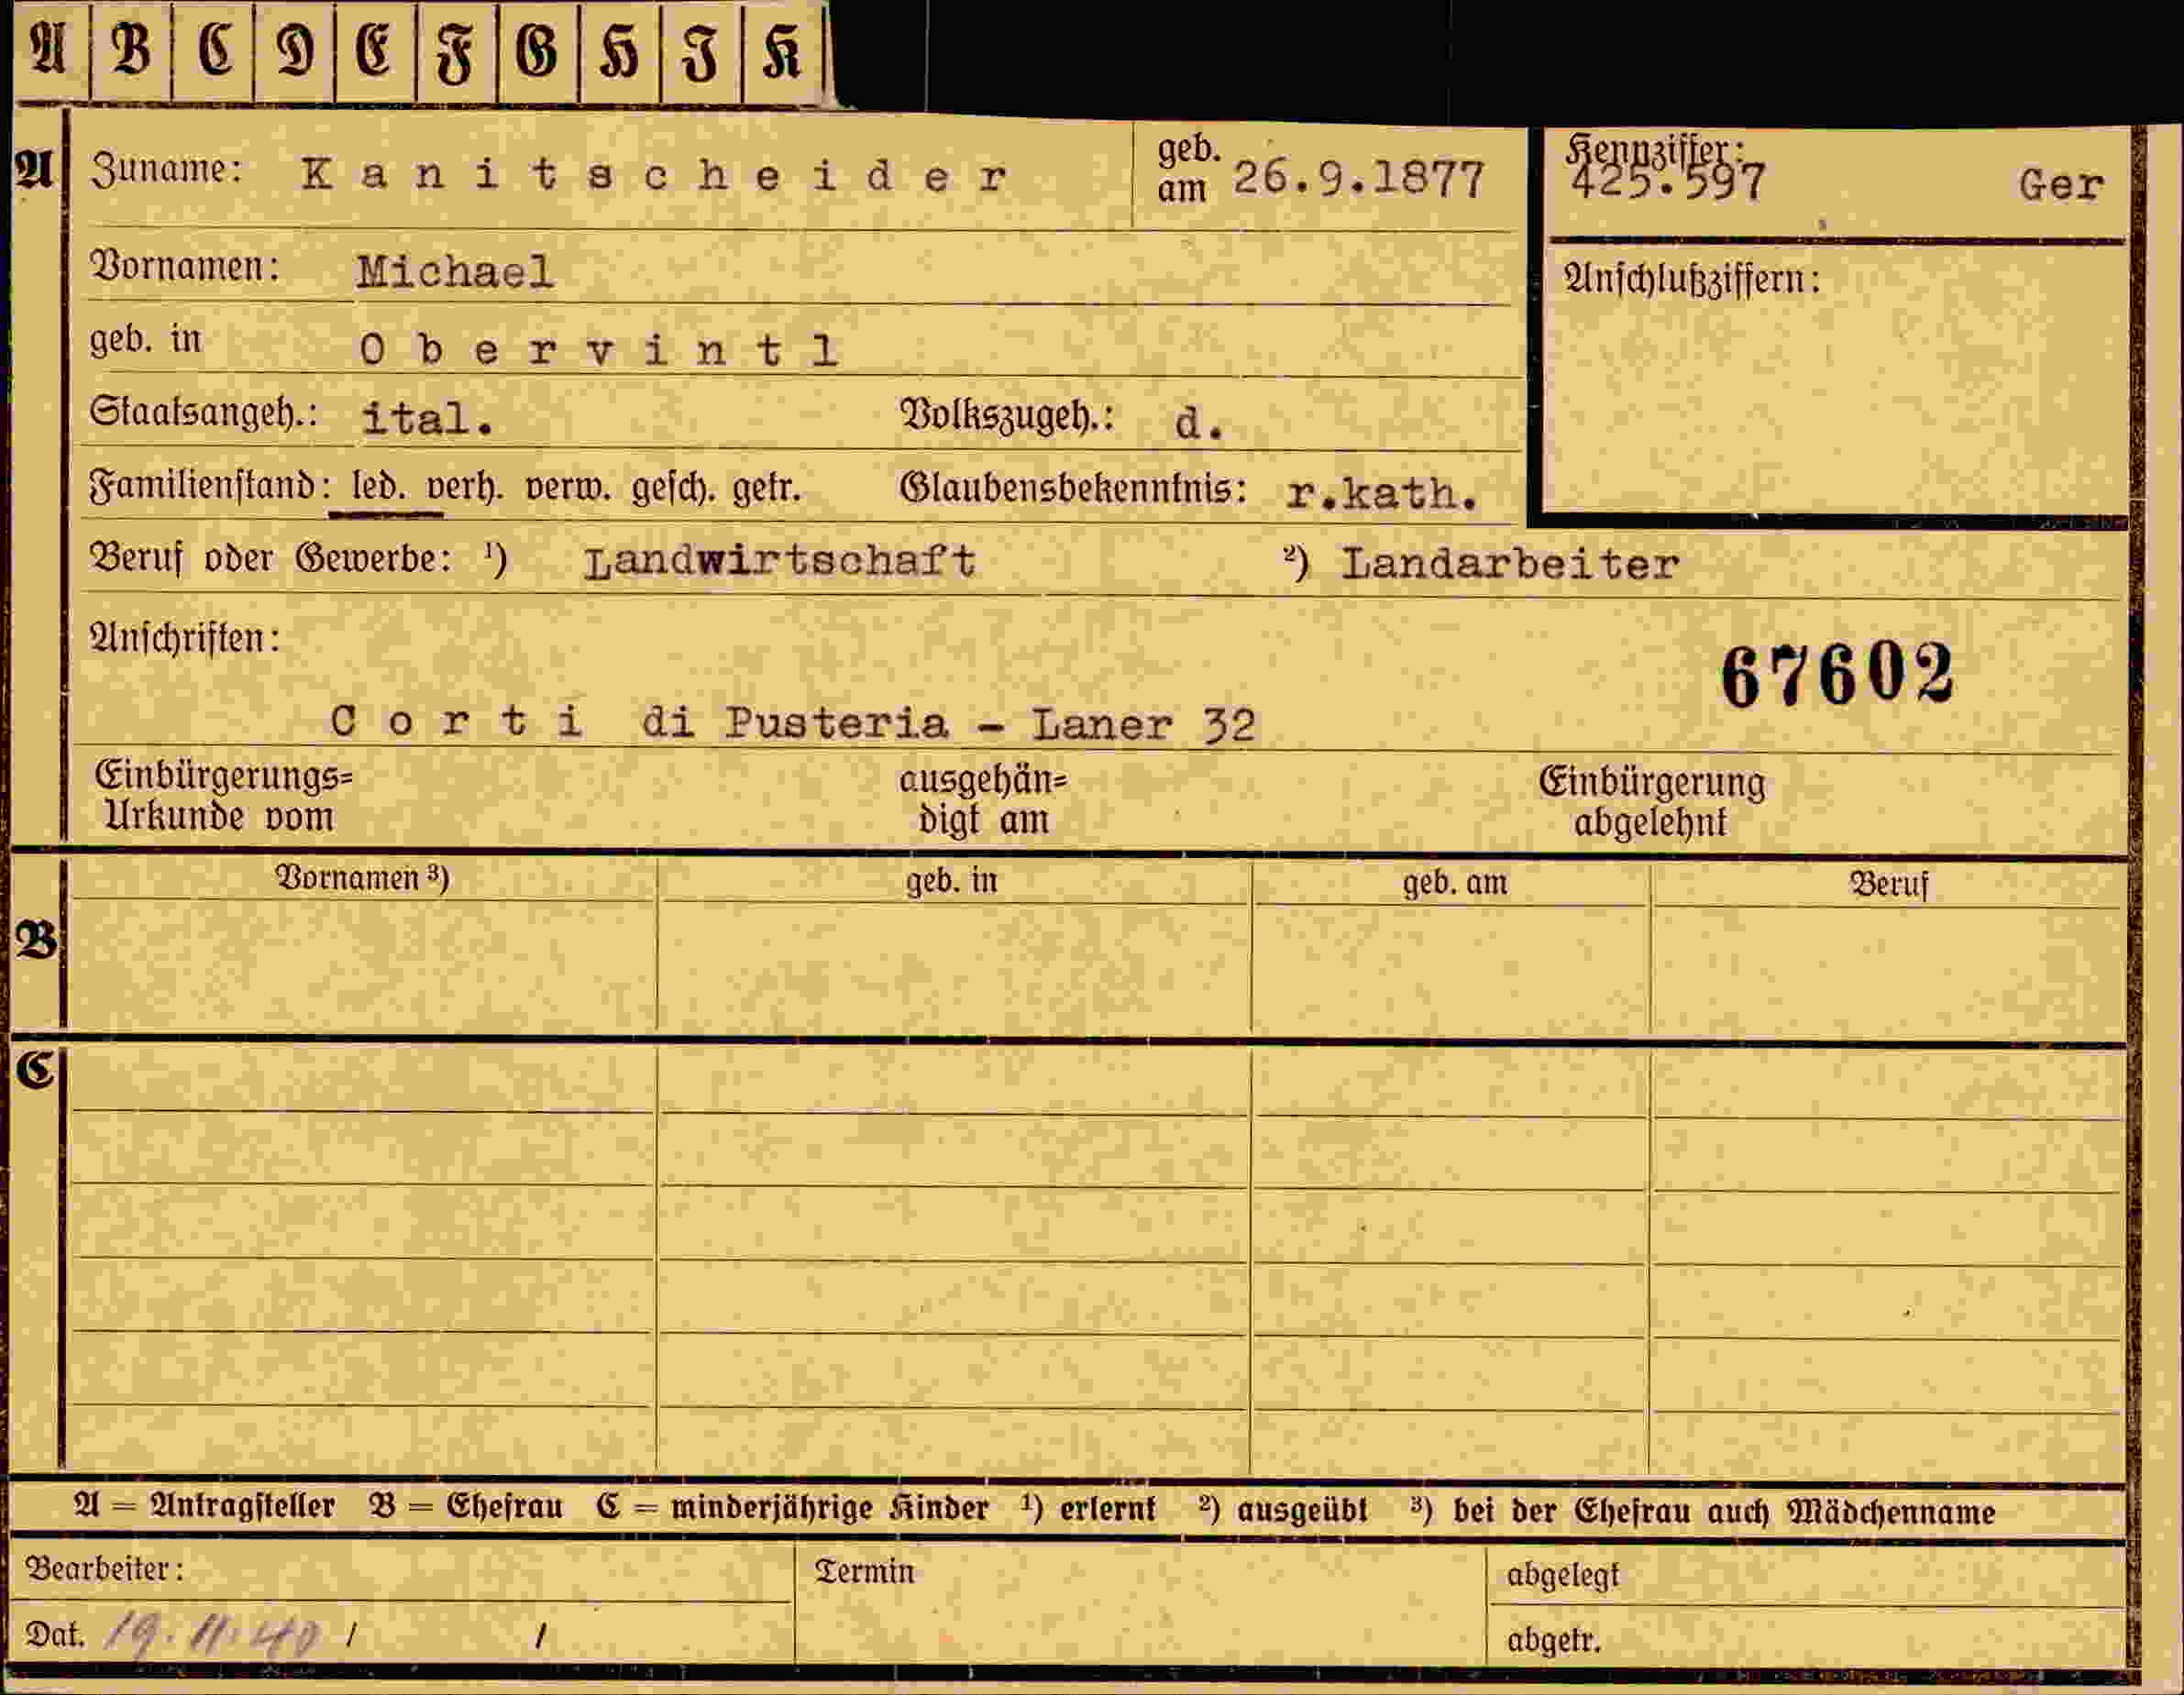 A B C D E F G H I K
A Zuname: Kanitscheider geb. am 26.9.1877 Kennziffer: 425.597 Ger
Vornamen: Michael Anschlußziffern:
geb. in Obervintl
Staatsangeh.: ital. Volkszugeh.: d.
Familienstand: led. verh. verw. gesch. getr. Glaubensbekenntnis: r.kath.
Beruf oder Gewerbe: ¹) Landwirtschaft ²) Landarbeiter
Anschriften:
67602
Corti di Pusteria - Laner 32
Einbürgerungs= ausgehän= Einbürgerung
Urkunde vom digt am abgelehnt
Vornamen ³) geb. in geb. am Beruf
B
C
A = Antragsteller B = Ehefrau C = minderjährige Kinder ¹) erlernt ²) ausgeübt ³) bei der Ehefrau auch Mädchenname
Bearbeiter: Termin abgelegt
Dat. 19.11.40 / / abgetr.